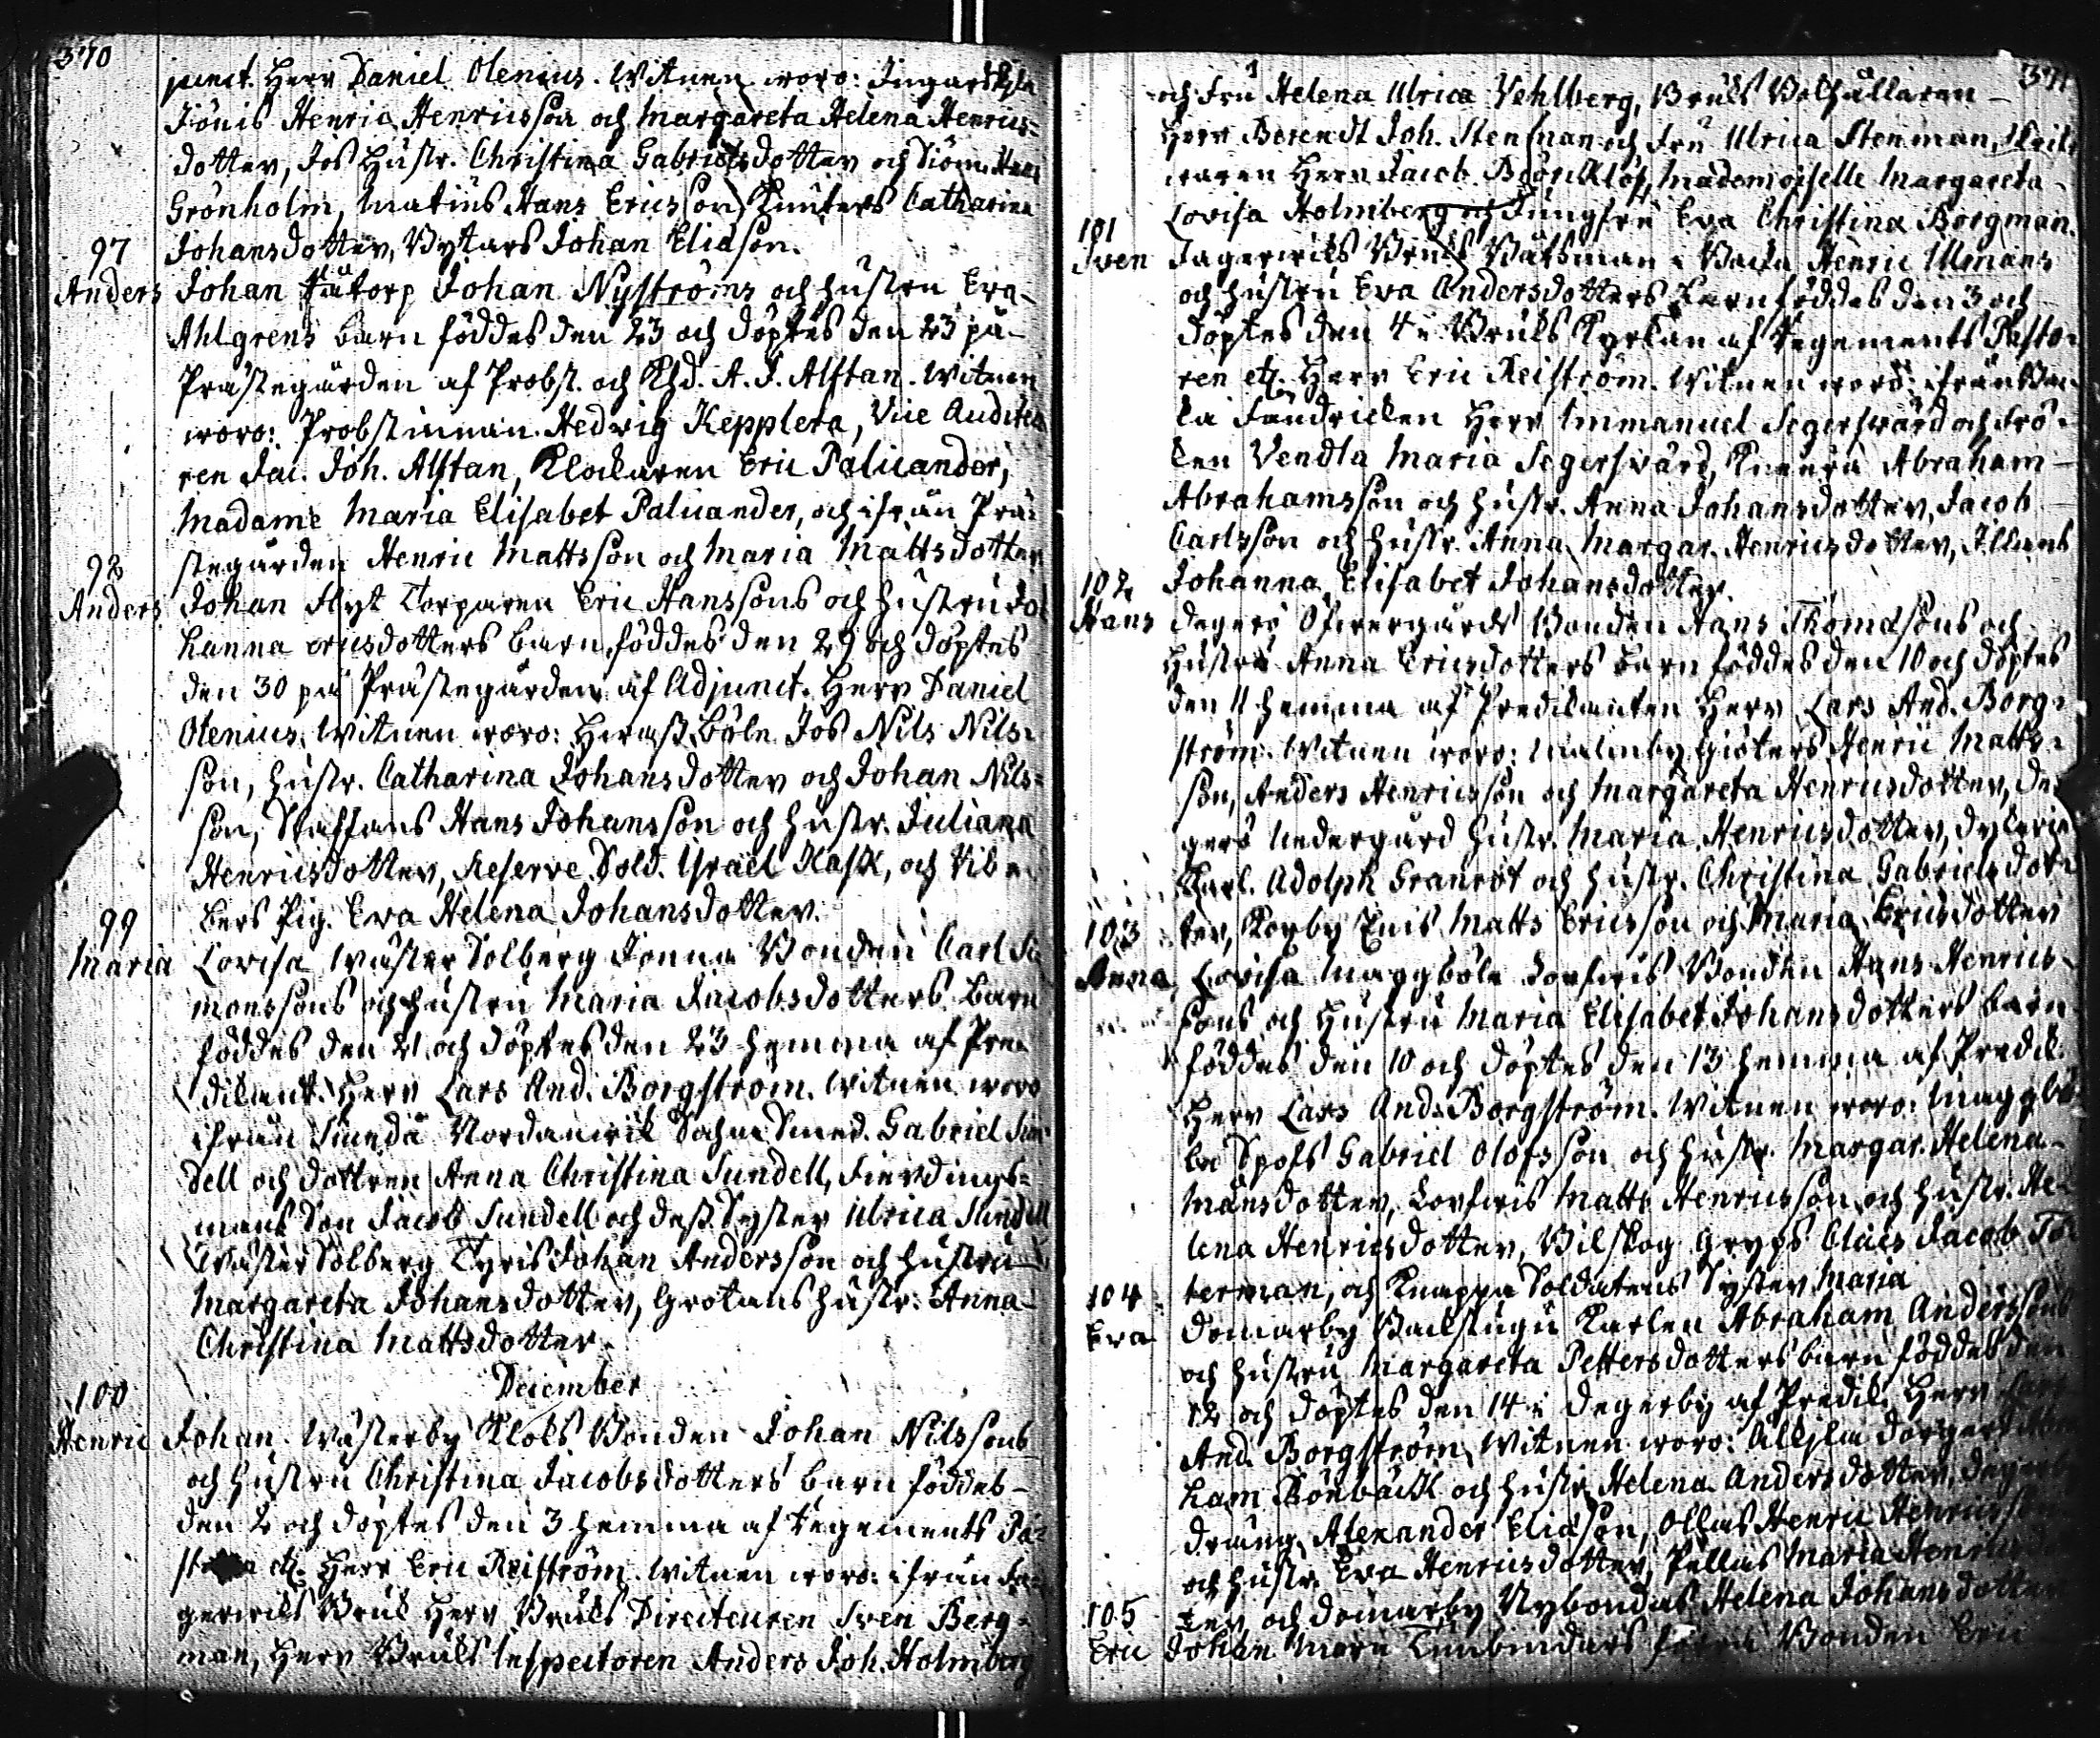 370
junct. Herr Daniel Olenius. Witnen woro: Ingarskyla
Jönis Henric Henricsson och Margareta Helena Henrics=
dotter, Jos Hustr. Christina Gabrielsdotter och
Grönholm, Matius Hans Ericsson, Knuters Catharina
Johansdotter, Bytars Johan Eliason.
97
Anders Johan Johan Nyströms och hustru Eva
Ahlgrens barn föddes den 23 och döptes den 23 på
Prästegården af Probst. och Khd. A. J. Alftan. Witnen
woro: Probstinnan Hedwig Kepplera, Vice Audito
ren Jac. Joh. Alftan, Klockaren Eric Palicander,
Madame Maria Elisabet Palicander, och ifrån Prä=
stegården Henric Mattsson och Maria Mattsdotter
98
Anders Johan Flyt Torparen Eric Hanssons och hustru Jo
hanna Ericsdotters barn, föddes den 29 och döptes
den 30 på Prästegården af Adjunct. Herr Daniel
Olenius. Witnen woro: Böle Jos Nils Nils=
son, hustr. Catharina Johansdotter och Johan Nils=
son, Staffans Hans Johansson och hustr. Juliana
Henricsdotter, Reserve Sold. Israel Rask, och
bers Pig. Eva Helena Johansdotter.
99
Maria Lovisa Wäster Solberg Jonna Bonden Carl Si
monssons och hustru Maria Jacobsdotters barn
föddes den 21 och döptes den 23 hemma af Pre=
dikant. Herr Lars And. Borgström. Witnen woro
ifrån Nordanwik Sochne Smed. Gabriel Sun
dell och dottren Anna Christina Sundell, Fierdings=
mans Son Jacob Sundell och dess Syster Ulrica Sundell
Wäster Solberg Tyris Johan Andersson och hustru
Margareta Johansdotter, Grotans hustr: Anna
Christina Mattsdotter.
December
100
Henric Johan Wästerby Klobs Bonden Johan Nilssons
och hustru Christina Jacobsdotters barn föddes
den 2 och döptes den 3 hemma af Regements Pa=
etc. Herr Eric Reiström. Witnen woro: ifrån Fa=
gerwiks Bruk Herr Bruks Directeuren Sven Berg=
man, Herr Bruks Inspectoren Anders Joh. Holmberg
371
och Fru Helena Ulrica Vehlberg, Bruks Bokhållaren
Herr Berendt Joh. Stenman och Fru Ulrica Stenman,
Herr Jacob Björklöf, Mademoiselle Margareta
Lovisa Holmberg och Jungfru Eva Christina Borgman.
101
Sven Fagerwiks Bruks Båtsman i Backa Henric Ulmans
och hustru Eva Andersdotters barn föddes den 3 och
döptes den 4 i Bruks Kyrkan af Regements Pasto=
ren etc. Herr Eric Reiström. Witnen woro: ifrån Bac=
ka Fändricken Herr Immanuel Segersvärd och Frö=
ken Vendla Maria Segersvärd, Abraham
Abrahamsson och hustr. Anna Johansdotter, Jacob
Carlsson och hustr. Anna Margar. Henricsdotter,
Johanna Elisabet Johansdotter.
102
Hans Degerö Öfwergårds Bonden Hans Thomassons och
hustru Anna Ericsdotters barn föddes den 10 och döptes
den 11 hemma af Predikanten Herr Lars And. Borg=
ström. Witnen woro: Malmby Giöters Henric Matts=
son, Anders Henricsson och Margareta Henricsdotter, De
gerö Nedergård hustr. Maria Henricsdotter,
Karl. Adolph Granrot och hustr. Christina Gabrielsdot=
ter, Korby Enis Matts Ericsson och Maria Ericsdotter
103
Anna Lovisa Maggböle Lovfwis Bonden Hans Henrics
sons och hustru Maria Elisabet Johansdotters barn
föddes den 10 och döptes den 13 hemma af Predik.
Herr Lars And. Borgström. Witnen woro: Maggbö
le Spofs Gabriel Olofsson och hustr. Margar. Helena
Månsdotter, Lovfwis Matts Henricsson och hustr. He=
lena Henricsdotter, Bilskog Gryps Claes Jacob
terman, och Knappa Soldatens Syster Maria
104
Eva Domarby Backstugu Karlen Abraham Anderssons
och hustru Margareta Pettersdotters barn föddes den
12 och döptes den 14 i Degerby af Predik. Herr Lars
And. Borgström. Witnen woro:
ham Rönbäck och hustr. Helena Andersdotter,
dräng Alexander Eliason, Ollas Henric Henricsson
och hustr. Eva Henricsdotter, Pellas Maria
ter, och Domarby Nybondas Helena Johansdotter
105
Eric Johan Bonden Eric